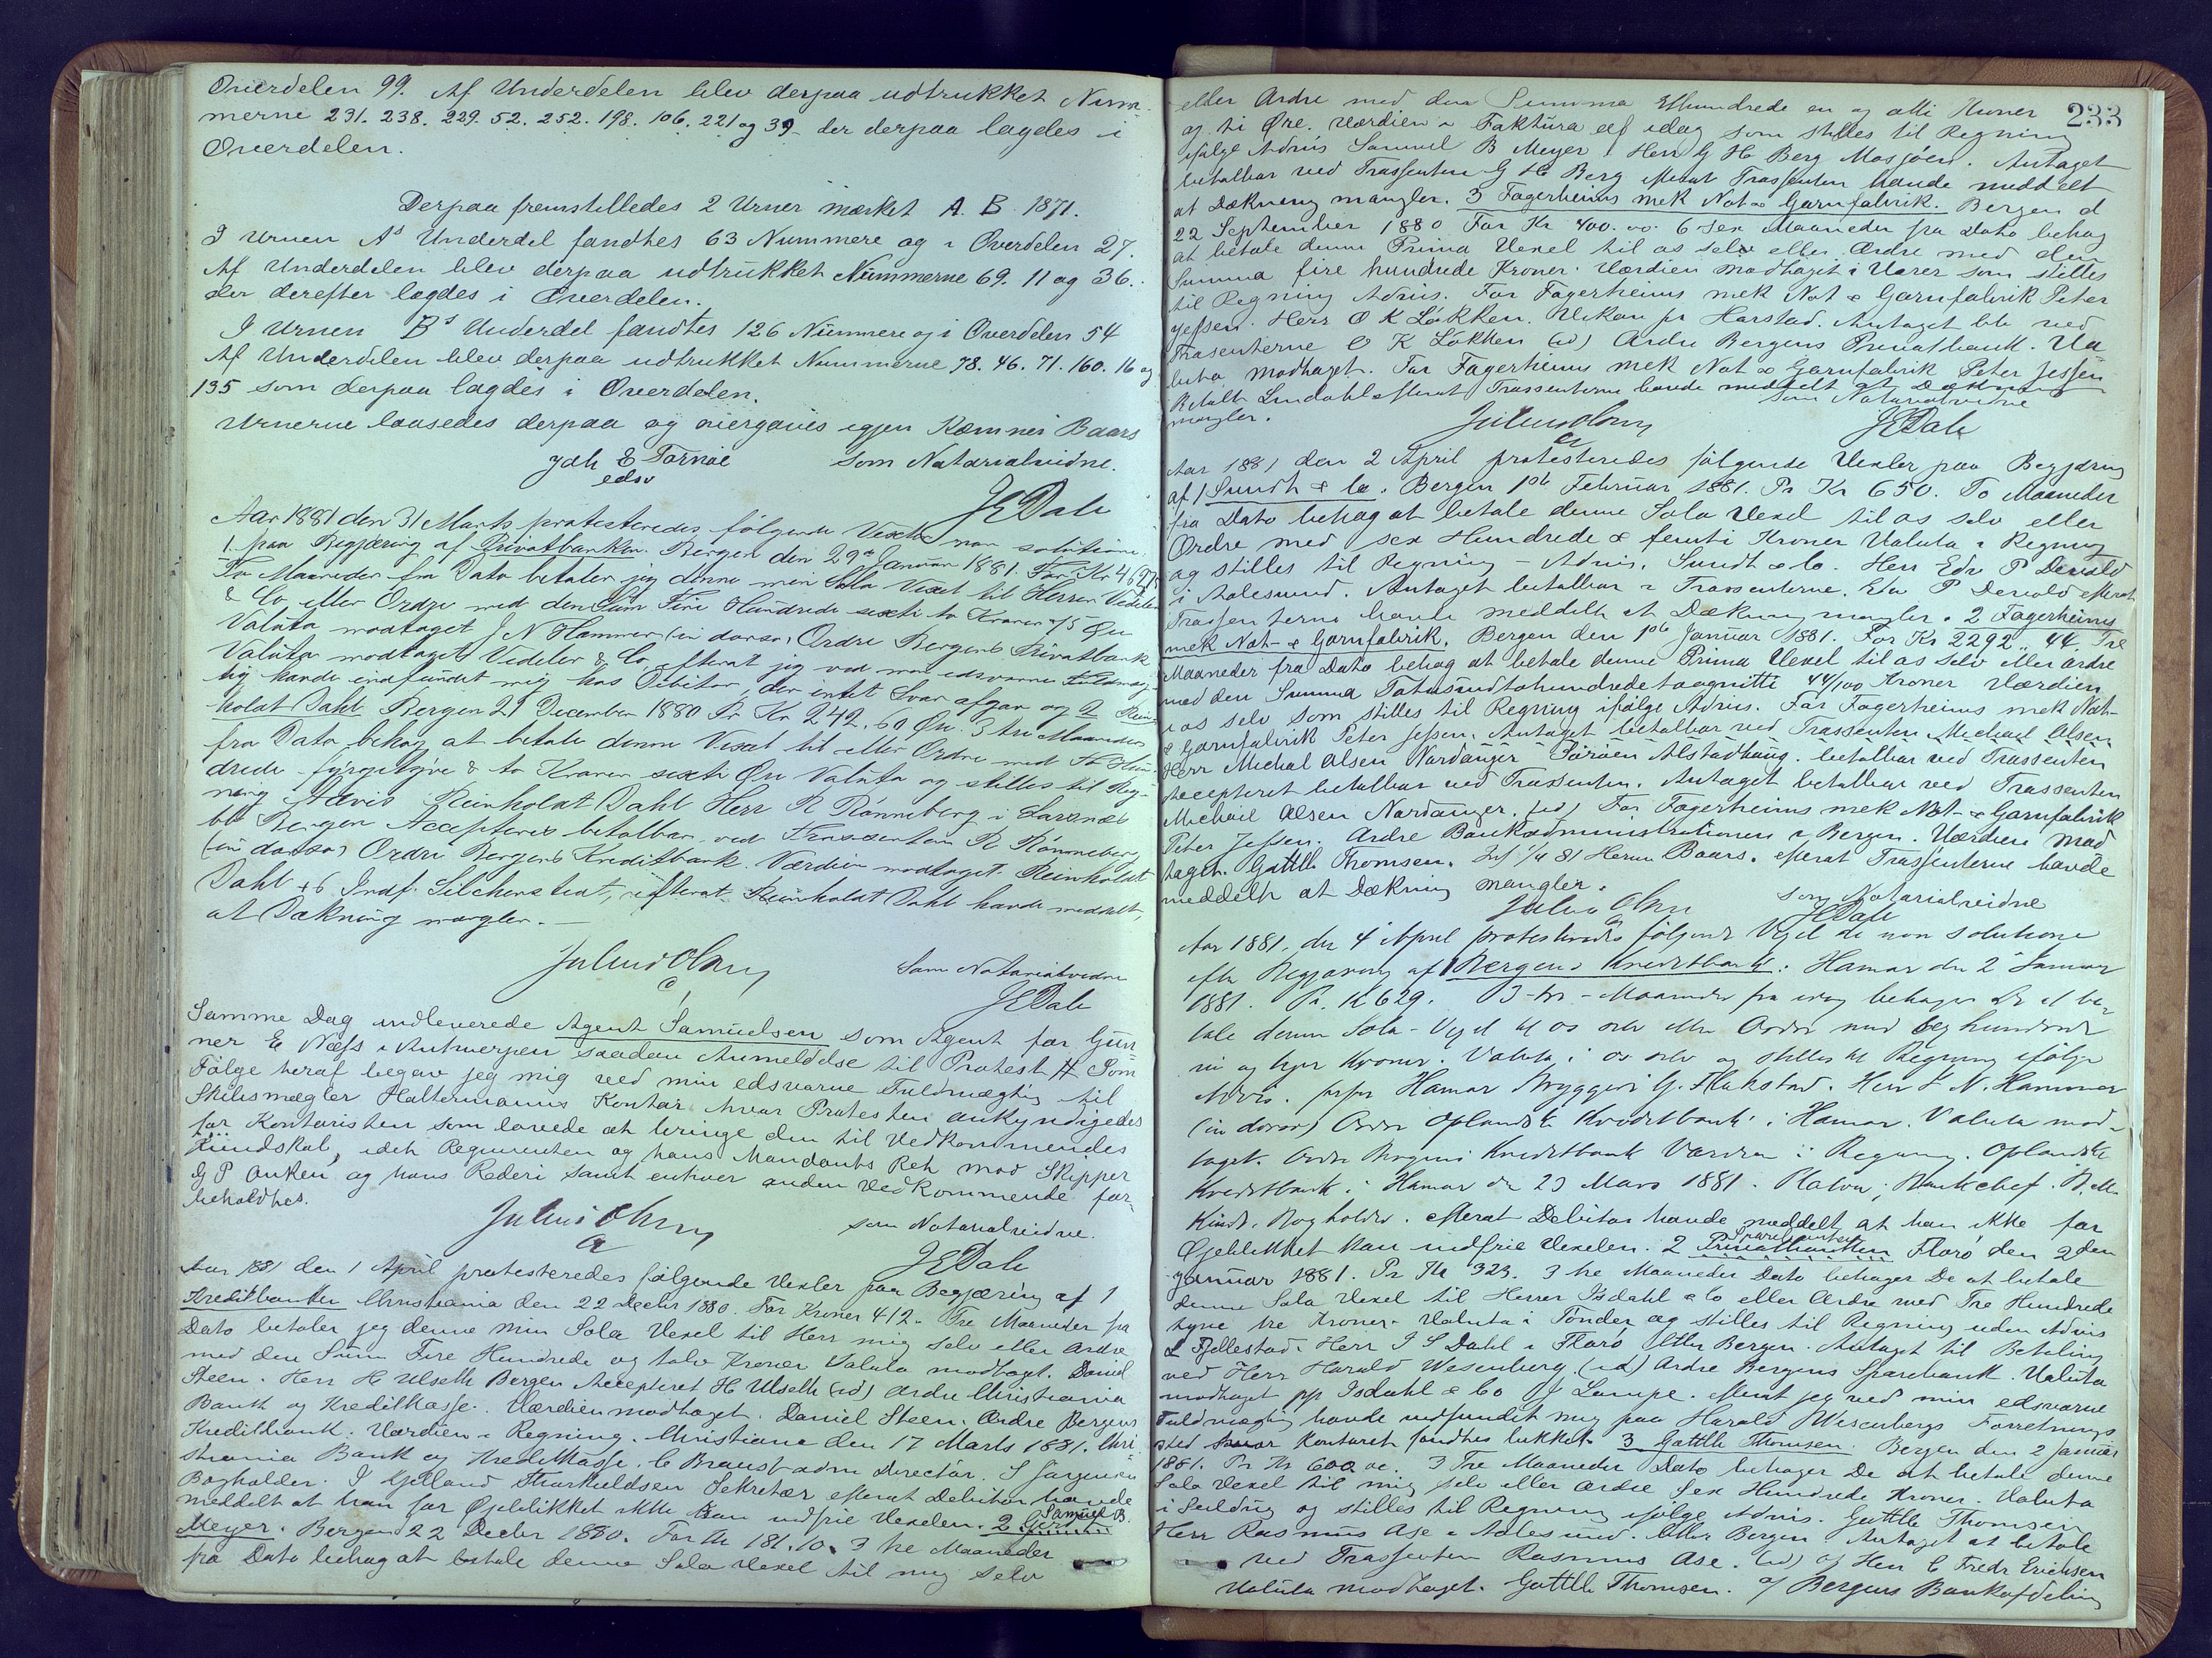 Overdelen 99. Af Underdelen blev derpaa udtrukket Num-
merne 231. 238. 229. 52. 252. 198. 106. 221 og 39 der derpaa lagdes i
Overdelen.
Derpaa fremstilledes 2 Urner mærket A. B. 1871.
I Urnen As Underdel fandtes 63 Nummere og i Overdelen 27.
Af Underdelen blev derpaa udtrukket Nummerne 69. 11 og 36.
der derefter lagdes i Overdelen.
I Urnen Bs Underdel fandtes 126 Nummere og i Overdelen 54
Af Underdelen blev derpaa udtrukket Nummerne 78. 46. 71. 160. 16 og
135 som derpaa lagdes i Overdelen.
Urnerne laasedes derpaa og overgaves igjen Kæmner Baars
Joh E Tornöe som Notarialvidne.
edsv JEDale
Aar 1881 den 31 Marts protesteredes følgende Vexler non solutione
1. paa Begjæring af Privatbanken. Bergen den 29de Januar 1881. For Kr 462.75
To Maaneder fra Dato betaler jeg denne min Sola Vexel til Herrer Vedeler
& Co eller Ordre med den Sum Fire Hundrede sexti to Kroner 75 Øre
Valuta modtaget J N Hammer (in dorso) Ordre Bergens Privatbank
Valuta modtaget Vedeler & Co, efterat jeg ved min edsvorne Fuldmæg-
tig havde indfundet mig hos Debitor, der intet Svar afgav og 2 Rein-
holdt Dahl Bergen 21 December 1880 Pr Kr 242.60 Øre. 3 tre Maaneder
fra Dato behag at betale denne Vexel til eller Ordre med To Hun-
drede fyrgetyve & to Kroner sexti Øre Valuta og stilles til Reg-
ning Advis Reinholdt Dahl Herr R Rönneberg i Larsnæs
bb Bergen Accepteres betalbar ved Trassenten R Rönneberg
(in dorso) Ordre Bergens Kreditbank Værdien modtaget. Reinholdt
Dahl efterat Reinholdt Dahl havde meddelt,
at Dækning mangler.
Julius Olsen Som Notarialvidne
JEDale
Samme Dag indleverede Agent Samuelsen som Agent for Gun-
ner E Næss i Antwerpen saadan Anmeldelse til Protest # Som
Følge heraf begav jeg mig ved min edsvorne Fuldmægtig til
Skibsmægler Haltermanns Kontor hvor Protesten ankyndigedes
for Kontoristen som lovede at bringe den til Vedkommendes
Kundskab, idet Requirenten og hans Mandants Ret mod Skipper
G P Anken og hans Rederi samt enhver anden Vedkommende for-
beholdtes.
Julius Olsen som Notarialvidne.
JEDale
Aar 1881 den 1 April protesteredes følgende Vexler paa Begjæring af 1
Kreditbanken Christiania den 22 Decbr 1880. For Kroner 412. Tre Maaneder fra
Dato betaler jeg denne min Sola Vexel til Herr mig selv eller Ordre
med den Sum Fire Hundrede og tolv Kroner Valuta modtaget. Daniel
Steen. Herr H Ulseth Bergen Accepteret H Ulseth (id) Ordre Christiania
Bank og Kreditkasse. Værdien modtaget. Daniel Steen. Ordre Bergens
Kreditbank. Værdien i Regning. Christiania den 17 Marts 1881. Chri-
stiania Bank og Kreditkasse. C adm Directør. S Jørgensen
Bogholder. J Gjelland Thorkildsen Sekretær efterat Debitor havde
meddelt at han for Øjeblikket ikke kan indfrie Vexelen. 2 Samuel B.
Meyer. Bergen 22 Decbr 1880. For Kr 181.10. 3 tre Maaneder
fra Dato behag at betale denne Sola Vexel til mig selv
233
eller Ordre med den Summa Ethundrede en og otti Kroner
og ti Øre. Værdien i Faktura af idag som stilles til Regning
ifølge Advis Samuel B Meyer. Herr G H Berg Mosjöen. Antaget
betalbar ved Trassenten G H Berg efterat Trassenten havde meddelt
at Dækning mangler. 3 Fagerheims mek Not & Garnfabrik. Bergen d
22 September 1880 For Kr 400.00. 6 Sex Maaneder fra Dato behag
at betale denne Prima Vexel til os selv eller Ordre med den
Summa fire hundrede Kroner. Værdien modtaget i Varer som stilles
til Regning Advis. For Fagerheims mek Not & Garnfabrik Peter
Jessen. Herr O K Løkken. pr Harstad. Antaget bb ved
Trasenterne O K Løkken (id) Ordre Bergens Privatbank. Va-
luta modtaget. For Fagerheims mek Not & Garnfabrik Peter Jessen
Betalt Lindahl efterat Trassenterne havde meddelt at Dækning
mangler. som Notarialvidne
Julius Olsen JEDale
Aar 1881 den 2 April protesteredes følgende Vexler paa Begjæring
af 1 Sundt & Co. Bergen 1ste Februar 1881. Pr Kr 650. To Maaneder
fra Dato behag at betale denne Sola Vexel til os selv eller
Ordre med sex Hundrede & femti Kroner Valuta i Regning
og stilles til Regning - Advis. Sundt & Co. Herr Edv P Devold
i Aalesund. Antaget betalbar i Trassenterne. Edv P Devold efterat
Trassenterne havde meddelt at Dækning mangler. 2 Fagerheims
mek Not- & Garnfabrik. Bergen den 1ste Januar 1881. For Kr 2292,, 44. Tre
Maaneder fra Dato behag at betale denne Prima Vexel til os selv eller Ordre
med den Summa Totusindtohundredetoognitti 44/100 Kroner Værdien
i os selv som stilles til Regning ifølge Advis. For Fagerheims mek Not-
& Garnfabrik Peter Jessen. Antaget betalbar ved Trassenten Michael Olsen.
Herr Michal Olsen Nordanger Alstadhaug. betalbar ved Trassenten
Accepteret betalbar ved Trassenten. Antaget betalbar ved Trassenten
Michael Olsen Nordanger. (id) For Fagerheims mek Not- & Garnfabrik
Peter Jessen. Ordre Bankadministrationen i Bergen. Værdien mod
taget. Gottlb Thomsen. 81 Herm Baars. efterat Trassenterne havde
meddelt at Dækning mangler.
Julius Olsen som Notarialvidne
JEDale
Aar 1881, den 4 April protesteredes følgende Vexel de non solutione
efter Begjæring af 1 Bergens Kreditbank: Hamar den 2 Januar
1881. Pr. Kr 629. 3-tre-Maaneder fra idag behager De at be-
tale denne Sola-Vexel til os selv eller Ordre med sex hundrede
ni og tyve Kroner. Valuta i os selv og stilles til Regning ifølge
Advis. Hamar Bryggeri G. Flakstad. Herr J. N. Hammer
(in dorso) Ordre Oplandske Kreditbank i Hamar. Valuta mod-
taget. Ordre Bergens Kreditbank Værdien i Regning. Oplandske
Kreditbank i Hamar den 23 Mars 1881. Platou, Bankchef.
Bogholder. efterat Debitor havde meddelt, at han ikke for
Øjeblikket kan indfrie Vexelen. 2 Privatbanken Sparebanken Florø den 2den
Januar 1881. Pr Kr 323. 3 tre Maaneder Dato behager De at betale
denne Sola Vexel til Herrer Isdahl & Co eller Ordre med Tre Hundrede
tyve tre Kroner. Valuta i Tønder og stilles til Regning uden Advis
L Fjellestad. Herr J S Dahl i Florø eller Bergen. Antaget til Betaling
ved Herr Harald Wesenberg (id) Ordre Bergens Sparebank. Valuta
modtaget pp Isdahl & Co Lampe efterat jeg ved min edsvorne
Fuldmægtig havde indfundet mig paa Harald Wesenbergs Forretnings-
sted hvor Kontoret fandtes lukket. 3 Gottlb Thomsen. Bergen den 2 Januar
1881. Pr Kr 600 00. 3 Tre Maaneder Dato behager De at betale denne
Sola Vexel til mig selv eller Ordre Sex Hundrede Kroner. Valuta
i Sending og stilles til Regning ifølge Advis. Gottlb Thomsen
Herr Rasmus Ase i Aalesund. eller Bergen. Antaget at betale
ved Trassenten Rasmus Ase. (id) Herr C Fredr Erichsen
Valuta modtaget. Gottlb Thomsen. Bergens Bankafdeling